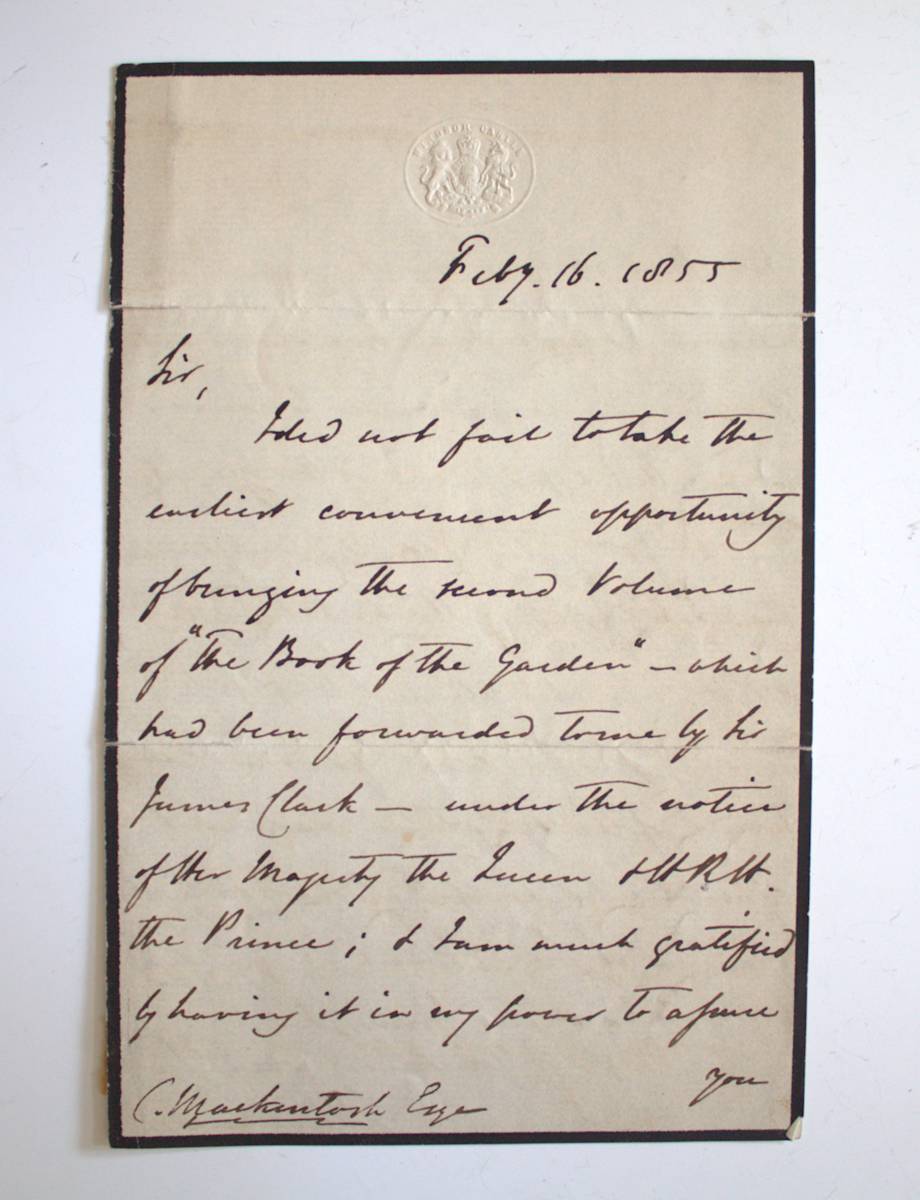 WINDSOR CASTLE
Feby. 16. 1855
Sir,
I did not fail to take the
earliest convenient opportunity
of bringing the second Volume
of "The Book of the Garden" — which
had been forwarded to me by Sir
James Clark — under the notice
of Her Majesty the Queen & H R H.
the Prince ; & I am much gratified
by having it in my power to assure
you
C. Mackintosh Esqe